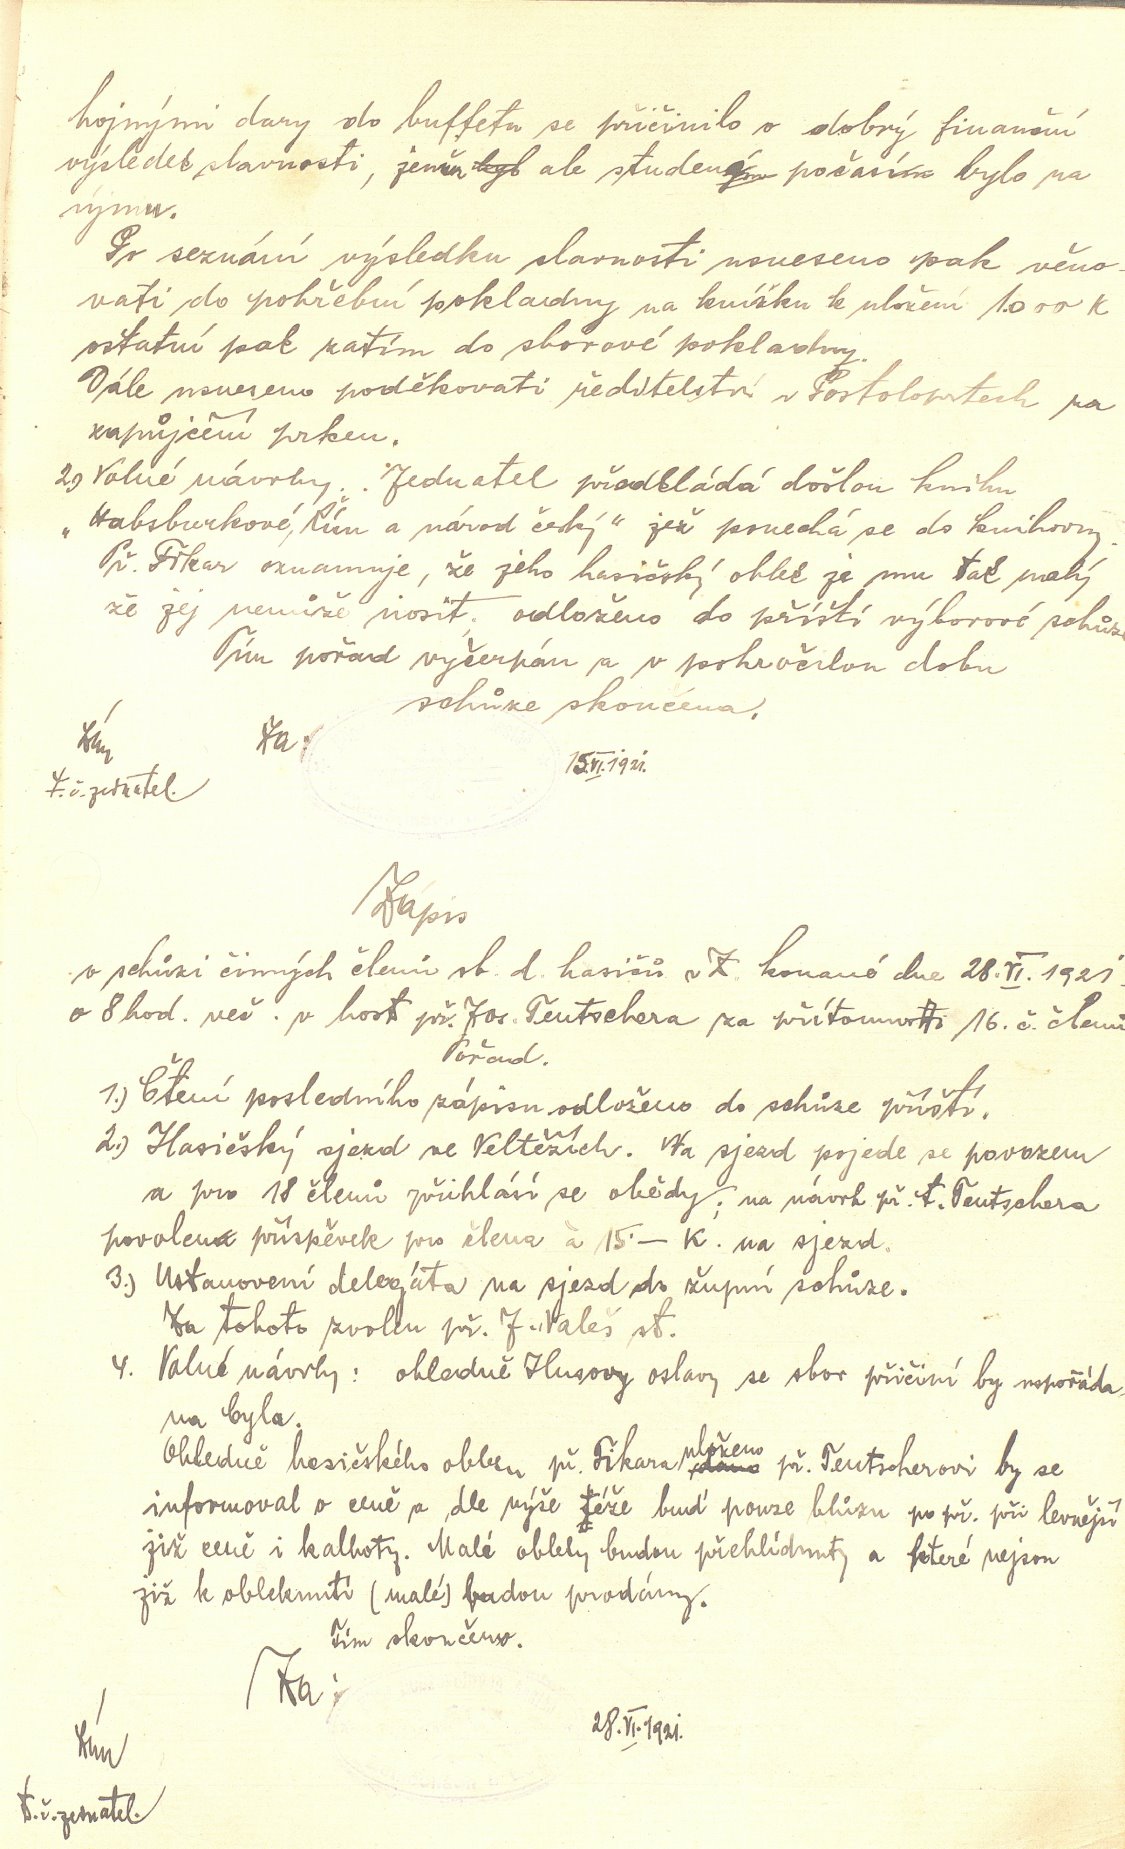 hojnými dary do buffetu se přičinilo o dobrý finanční
výsledek slavnosti, jenž byl ale studeným počasím bylo na
újmu.
Po seznání výsledku slavnosti usneseno pak věno-
vati do pohřební pokladny na knížku k uložení 1000 K
ostatní pak zatím do sborové pokladny.
Dále usneseno poděkovati ředitelství v Postoloprtech za
zapůjčení prken.
2) Volné návrhy. Jednatel předkládá došlou knihu
„Habsburkové, Řím a národ český" jež ponechá se do knihovny.
Př. Fikar oznamuje, že jeho hasičský oblek je mu tak malý
že jej nemůže nosit, odloženo do příští výborové schůze
Tím pořad vyčerpán a v pokročilou dobu
schůze skončena.
Za:
15.VI.1921.
t.č. jednatel.
Zápis
o schůzi činných členů sb. d. hasičů v Ž. konané dne 28.VI.1921
o 8 hod. več. v host. př. Jos. Teutschera za přítomnosti 16. č. členů
Pořad.
1.) Čtení posledního zápisu odloženo do schůze příští.
2.) Hasičský sjezd ve Veltěžích. Na sjezd pojede se povozem
a pro 18 členů přihlásí se obědy; na návrh př. t. Teutschera
povolena příspěvek pro člena à 15.— K. na sjezd.
3.) Ustanovení delegáta na sjezd do župní schůze.
Za tohoto zvolen př. J. Valeš st.
4. Volné návrhy: ohledně Husovy oslavy se sbor přičiní by uspořáda-
na byla.
Ohledně hasičského obleku př. Fikara uloženo dáno př. Teutscherovi by se
informoval o ceně a dle výše téže buď pouze blůzu po př. při levnější
již ceně i kalhoty. Malé obleky budou přehlídnuty a které nejsou
již k obleknutí (malé) budou prodány.
Tím skončeno.
Za:
28.VI.1921.
t.č. jednatel.